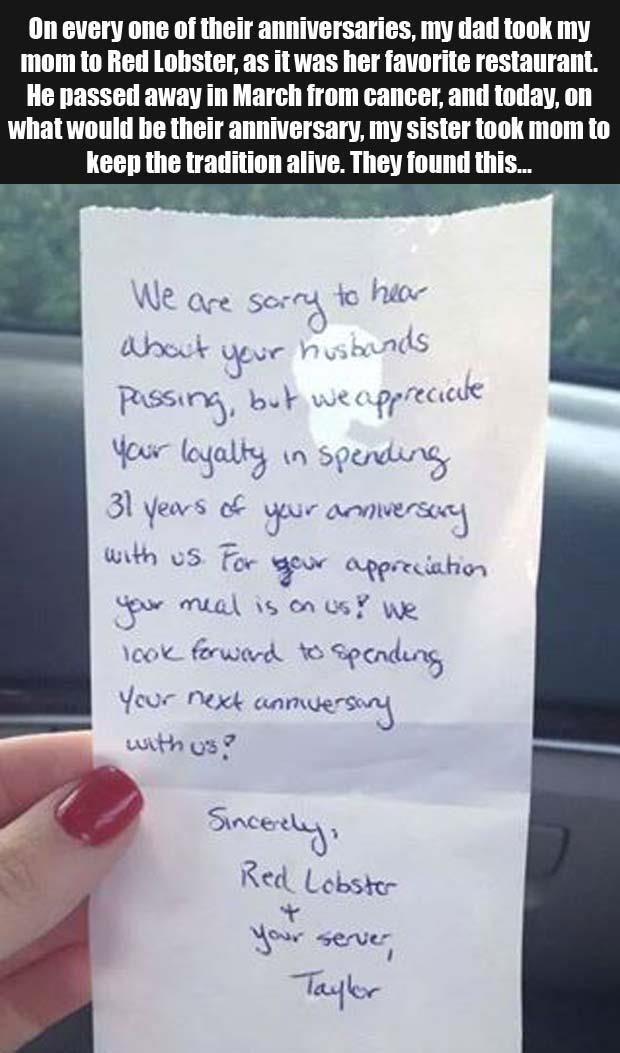 On every one of their anniversaries, my dad took my
mom to Red Lobster, as it was her favorite restaurant.
He passed away in March from cancer, and today, on
what would be their anniversary, my sister took mom to
keep the tradition alive. They found this...
We are sorry to hear
about your husbands
passing, but we appreciate
your loyalty in spending
31 years of your anniversary
with us. For your appreciation
your meal is on us! We
look forward to spending
your next anniversary
with us!
Sincerely,
Red Lobster
+
your server,
Taylor